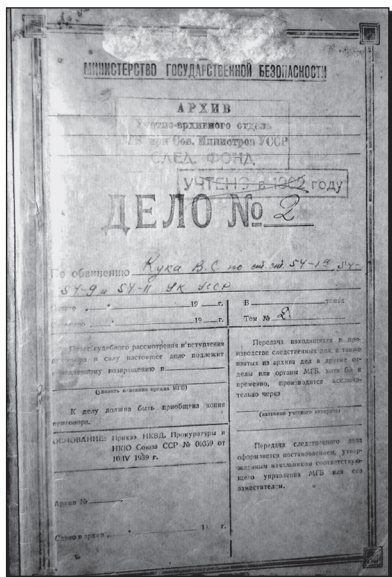 МИНИСТЕРСТВО ГОСУДАРСТВЕННОЙ БЕЗОПАСНОСТИ
АРХИВ
Учетно-архивного отдела
при Сов. Министров УССР
СЛЕД. ФОНД.
УЧТЕНО в 1962 году
ДЕЛО № 2
По обвинению Кука В. С по
54-9 и 54-11 УК УССР
19 г.
19 г.
В томах
Том № 2
рассмотрения и вступления
в силу настоящее дело подлежит
возвращению в
(указать название органа МГБ)
К делу должна быть приобщена копия
приговора.
ОСНОВАНИЕ: Приказ НКВД, Прокуратуры и
НКЮ Союза ССР № 00359 от
10/IV 1939 г.
Архив №
Сдано в архив 19 г.
Передача находящихся в про-
изводстве следственных дел, а также
взятых из архива дел в другие от-
делы или органы МГБ, хотя бы и
временно, производится исключи-
тельно через
(название учетного аппарата)
Передача следственного дела
оформляется постановлением, утвер-
жденным начальником соответствую-
щего управления МГБ или его
заместителем.